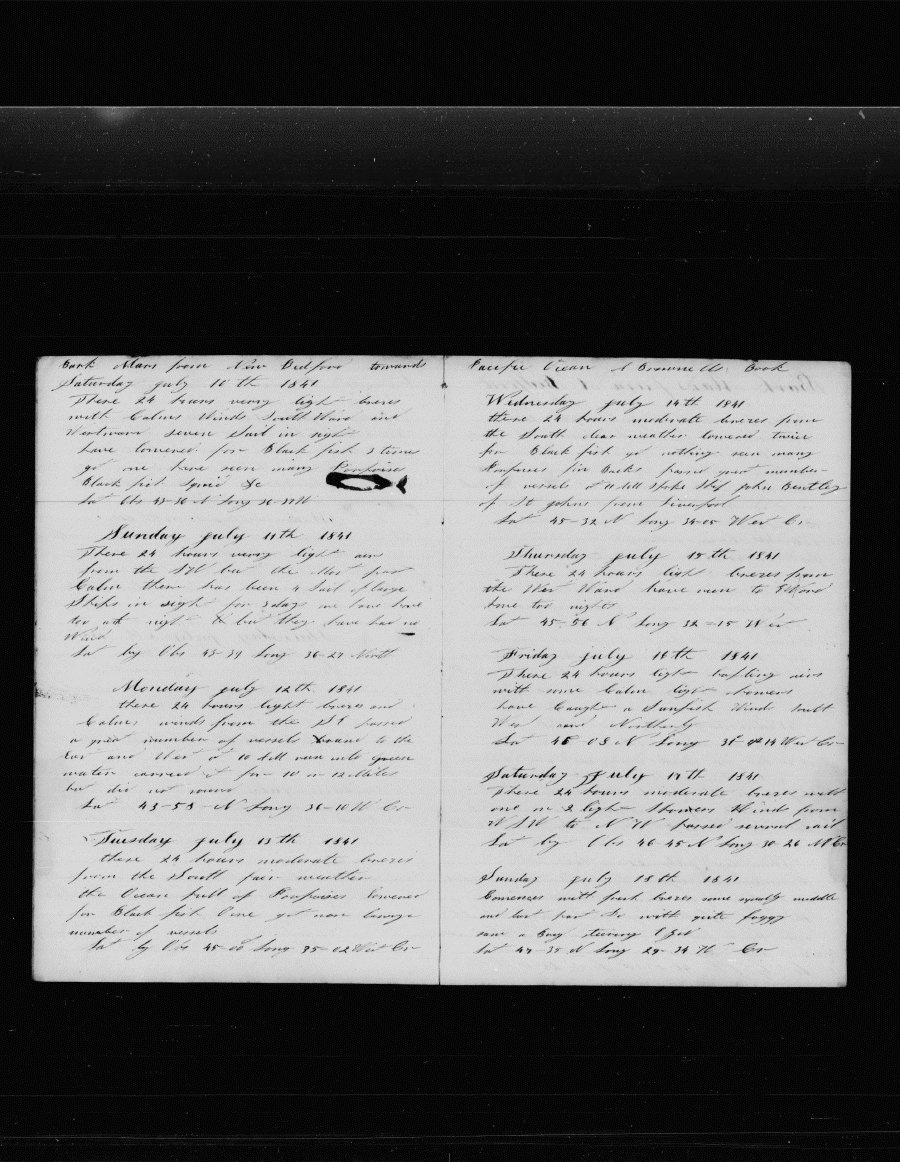 Bark Mars from New Bedford towards
Saturday july 10th 1841
These 24 hours verry light breses
with Calms Winds South Ward and
Westward seven Sail in sight
have lowered for Black fish 3 times
got one have seen many Porpoises
Black fish Squid &c
Lat Obs 43-36 N Long 36-37 W
Sunday july 11th 1841
These 24 hours verry light airs
from the SW but the Most part
Calm there has been 4 Sail of large
Ships in sight for 3 days we have
too at night & but they have had no
Wind
Lat by Obs 43-39 Long 36-27 West
Monday july 12th 1841
these 24 hours light breses and
Calms winds from the passed
a great number of vessels bound to the
East and West at 10 AM run into green
water carried it for 10 or 12 Miles
but did not sound
Lat 43-53 N Long 36-10 W Cr
Tuesday july 13th 1841
these 24 hours moderate breses
from the South fair weather
the Ocean full of Porpoises lowered
for Black fish Cove got non large
number of vessels
Lat by Obs 45-00 Long 35-02 West Cr
Pacific Ocean Brownells Book
Wednesday july 14th 1841
these 24 hours moderate breezes from
the South clear weather lowered twice
for Black fish got nothing seen many
Porpoises fin Backs passed great number
of vessels at 11 AM spoke Ship john Bentley
of St johns from Liverpool
Lat 45-32 N Long 34-00 West Cr
Thursday july 15th 1841
These 24 hours light breezes from
the West Ward have seen to
hove too nights
Lat 45-56 N Long 32-15 West
Friday july 16th 1841
These 24 hours light baffling airs
with some Calm light showers
have Caught a Sunfish Winds South
West and Northerly
Lat 46-03 N Long 31 14 West Cr
Saturday july 17th 1841
These 24 hours moderate breezes with
one or 2 light Showers Winds from
WSW to NW passed several sail
Lat by Obs 46-45 N Long 30-26 W Cr
Sunday july 18th 1841
Comences with fresh breezes some squally middle
and last part Do with quite foggy
saw a Brig steering
Lat 47-35 N Long 29-34 W Cr